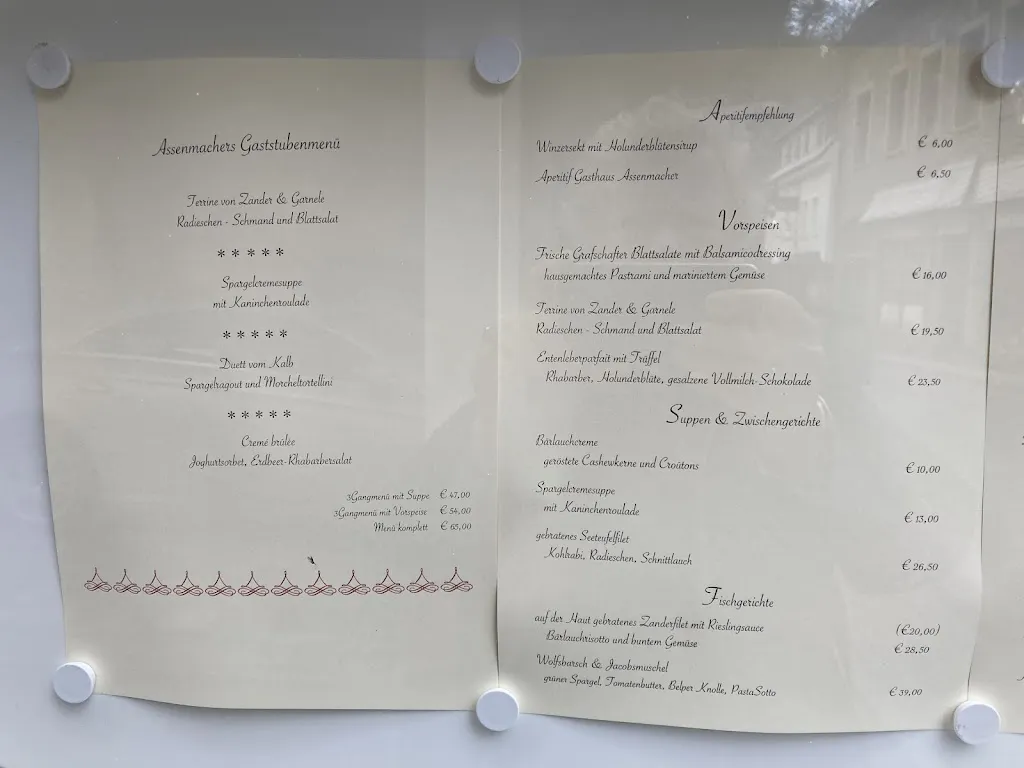 Assenmachers Gaststubenmenü
Terrine von Zander & Garnele
Radieschen - Schmand und Blattsalat
* * * * *
Spargelcremesuppe
mit Kaninchenroulade
* * * * *
Duett vom Kalb
Spargelragout und Morcheltortellini
* * * * *
Cremé brûlée
Joghurtsorbet, Erdbeer-Rhabarbersalat
3Gangmenü mit Suppe € 47,00
3Gangmenü mit Vorspeise € 54,00
Menü komplett € 65,00
Aperitifempfehlung
Winzersekt mit Holunderblütensirup € 6,00
Aperitif Gasthaus Assenmacher € 6,50
Vorspeisen
Frische Grafschafter Blattsalate mit Balsamicodressing
hausgemachtes Pastrami und mariniertem Gemüse € 16,00
Terrine von Zander & Garnele
Radieschen - Schmand und Blattsalat € 19,50
Entenleberparfait mit Trüffel
Rhabarber, Holunderblüte, gesalzene Vollmilch-Schokolade € 23,50
Suppen & Zwischengerichte
Bärlauchcreme
geröstete Cashewkerne und Croûtons € 10,00
Spargelcremesuppe
mit Kaninchenroulade € 13,00
gebratenes Seeteufelfilet
Kohlrabi, Radieschen, Schnittlauch € 26,50
Fischgerichte
auf der Haut gebratenes Zanderfilet mit Rieslingsauce (€20,00)
Bärlauchrisotto und buntem Gemüse € 28,50
Wolfsbarsch & Jacobsmuschel
grüner Spargel, Tomatenbutter, Belper Knolle, PastaSotto € 39,00